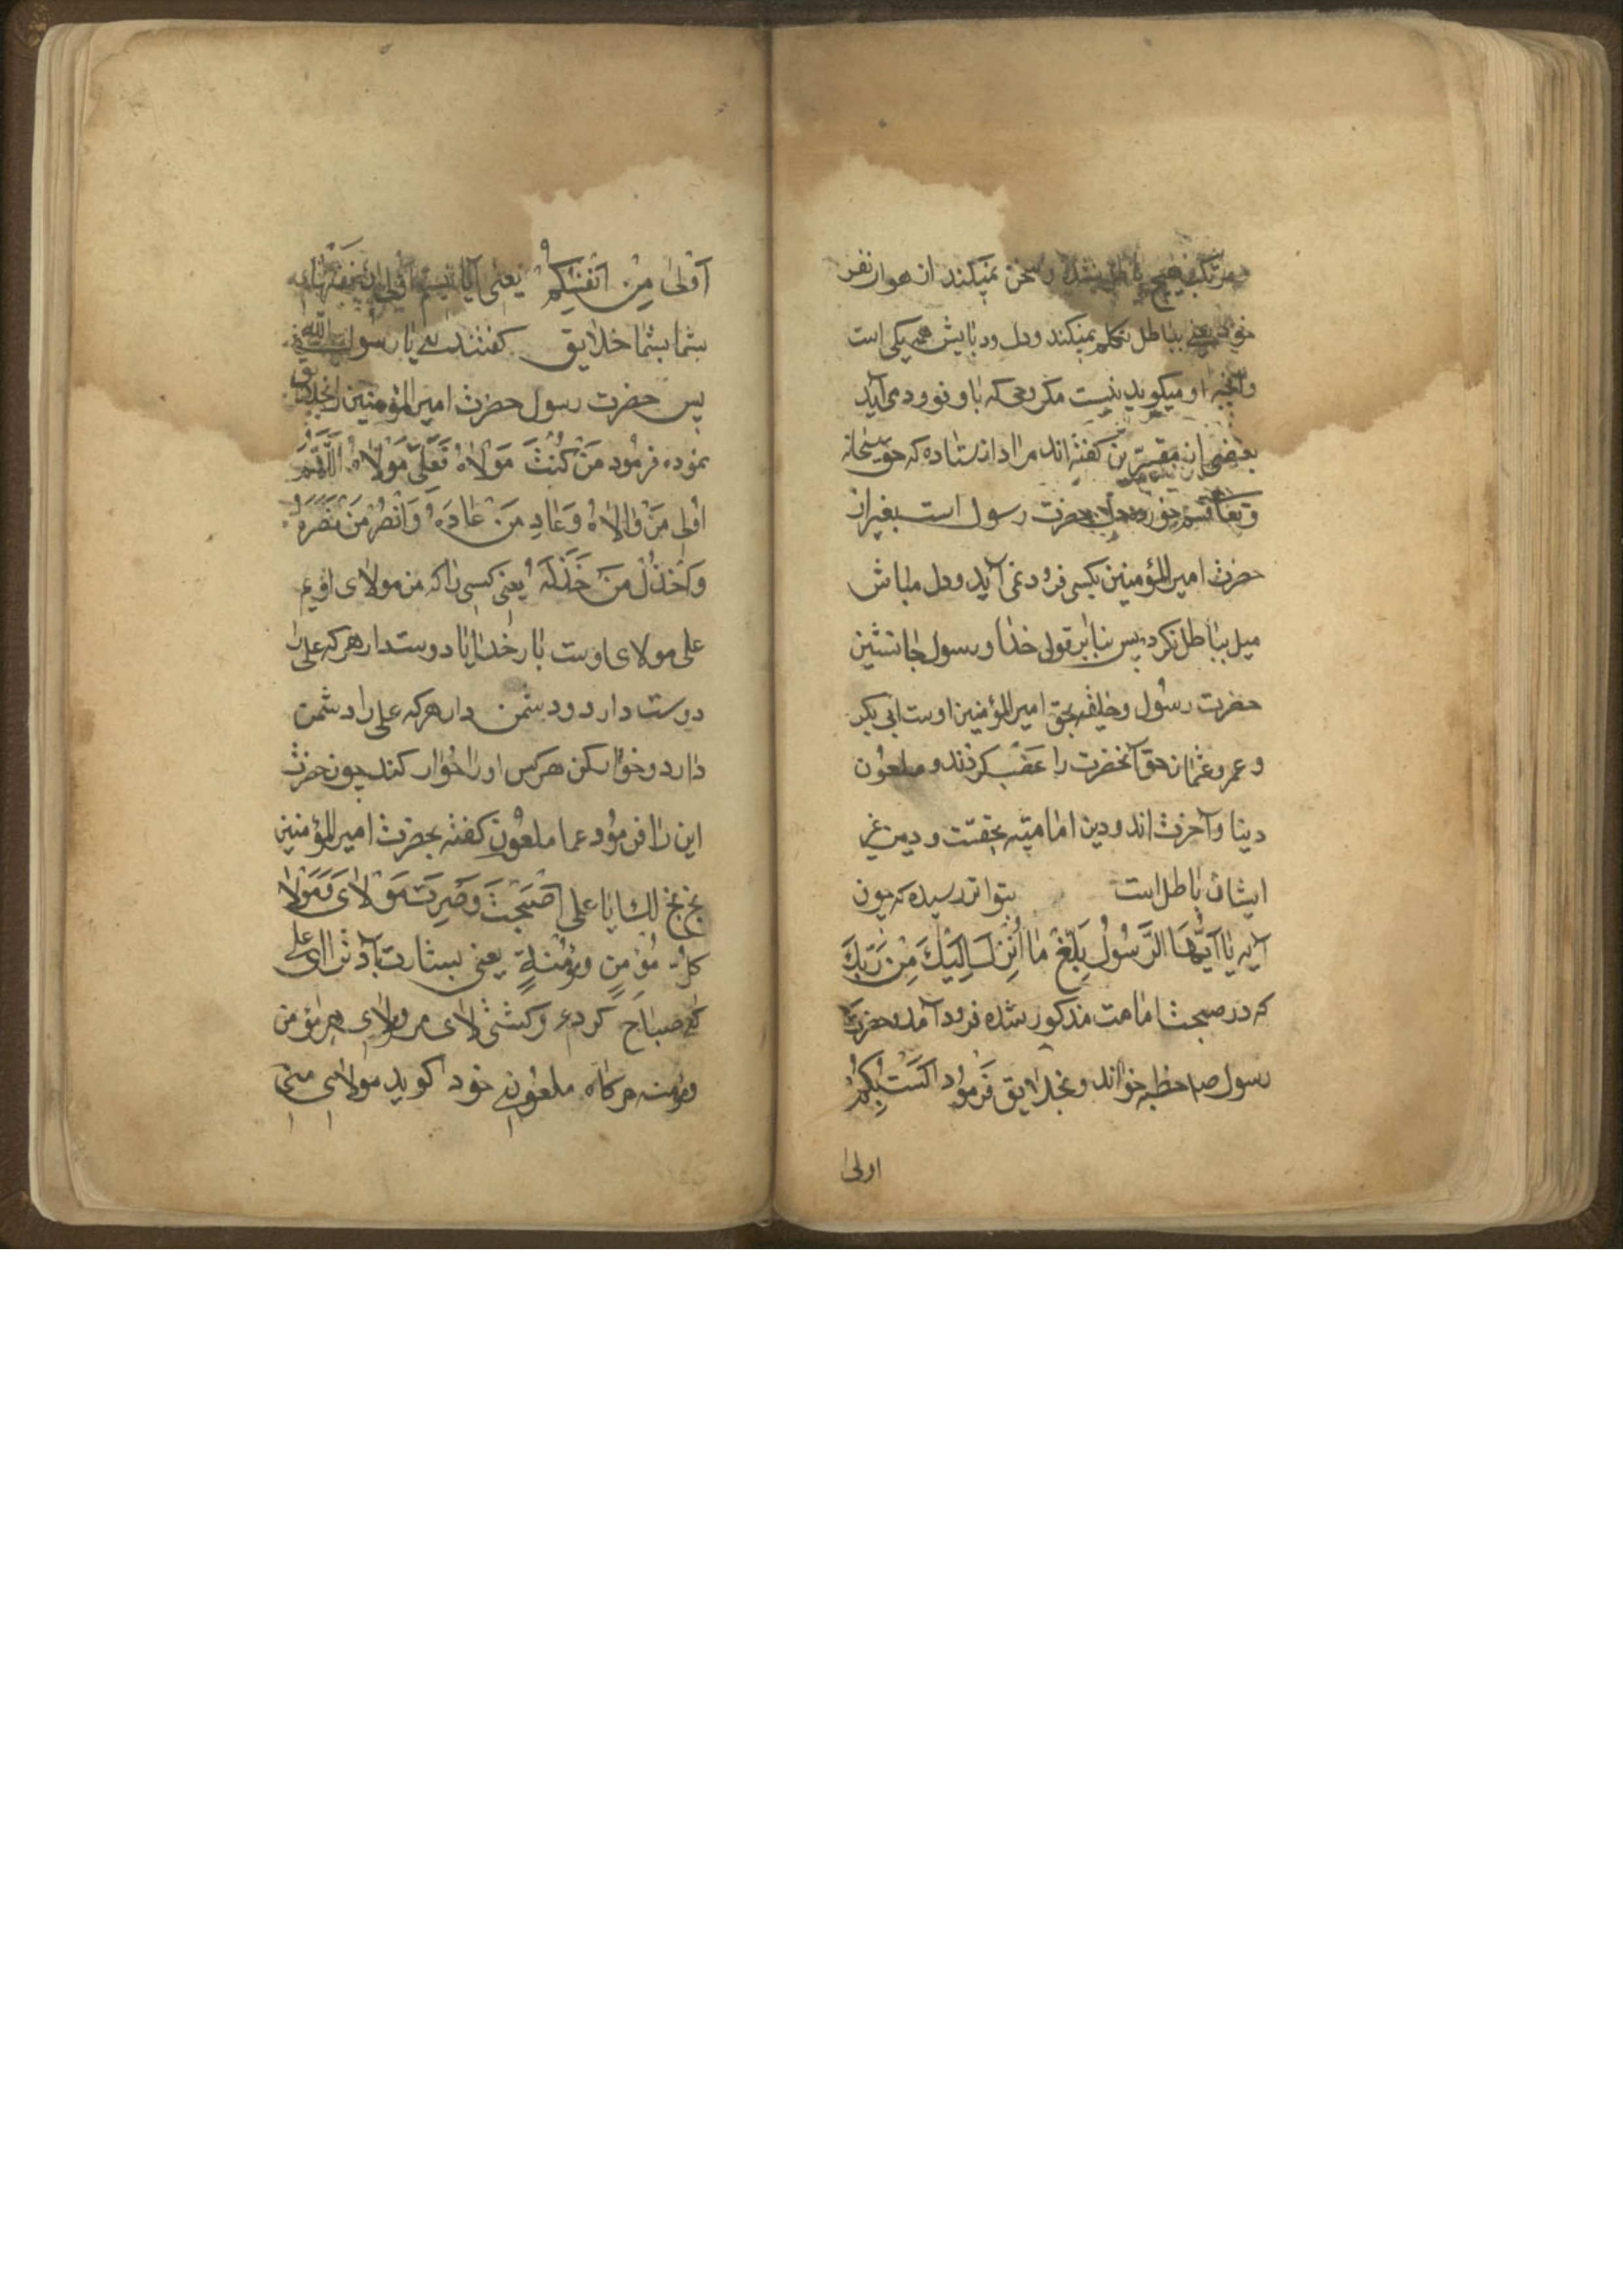 مرتکب هیچ باطل نشده و سخن نمیکند از هوار نفس
خود یعنی بباطل تکلم نمیکند و دل و زبانش همه یکی است
و آنچه او میکوید نیست مکر وحی که باو فرود می آید
بعضی از مفسرین کفته اند مراد از ستاده که حق سبحانه
و تعالی قسم خورده حضرت رسول است بغیر از
حضرت امیر المؤمنین بکسی فرود نمی آید و دل مباش
میل بباطل نکرد پس بنا بر قول خدا و رسول جانشین
حضرت رسول و خلیفه بحق امیر المؤمنین اوست ابی بکر
و عمر و عثمان حق آنحضرت را غصب کردند و ملعون
دنیا و آخرت اند و دین امامیه بحقست و دین غیر
ایشان باطل است بتواتر رسیده که چون
آیه یا اَیُّهَا الرَّسُولُ بَلِّغْ ما اُنْزِلَ اِلَیْكَ مِنْ رَبِّكَ
که در مبحث امامت مذکور شده فرود آمد حضرت
رسول ص خطبه خواند و بخلایق فَرمود اَلَسْتُ بِکُمْ
اولی
اَوْلیٰ مِنْ اَنْفُسِکُمْ یعنی آیا نیستم اولی از نفسهای
شما بشما خلایق کفتند بلی یا رسول الله
پس حضرت رسول حضرت امیر المؤمنین را بخلایق
نموده فرمود مَنْ کُنْتُ مَوْلاهُ فَعَلِیٌّ مَوْلاهُ اَللّٰهُمَّ
والِ مَنْ والاهُ وَعادِ مَنْ عادَهُ وَانْصُرْ مَنْ نَصَرَهُ
وَاخْذُلْ مَنْ خَذَلَهُ یعنی کسی را که من مولای اویم
علی مولای اوست بار خدایا دوست دار هر که علی را
دوست دارد و دشمن دار هر که علی را دشمن
دارد و خوار کن هر کس او را خوار کند چون حضرت
این را فرمود عما ملعون کفته بحضرت امیر المؤمنین
بخ بخ لك یا علی اَصْبَحْتَ وَصِرْتَ مَوْلایَ وَمَوْلا
کلِّ مُؤمنٍ ومُؤمنةٍ یعنی بشارت باد ترا ای علی
که صباح کردی و کشتی مولای من و مولای هر مؤمن
و مؤمنه هر کاه ملعونی خود کوید مولای منی